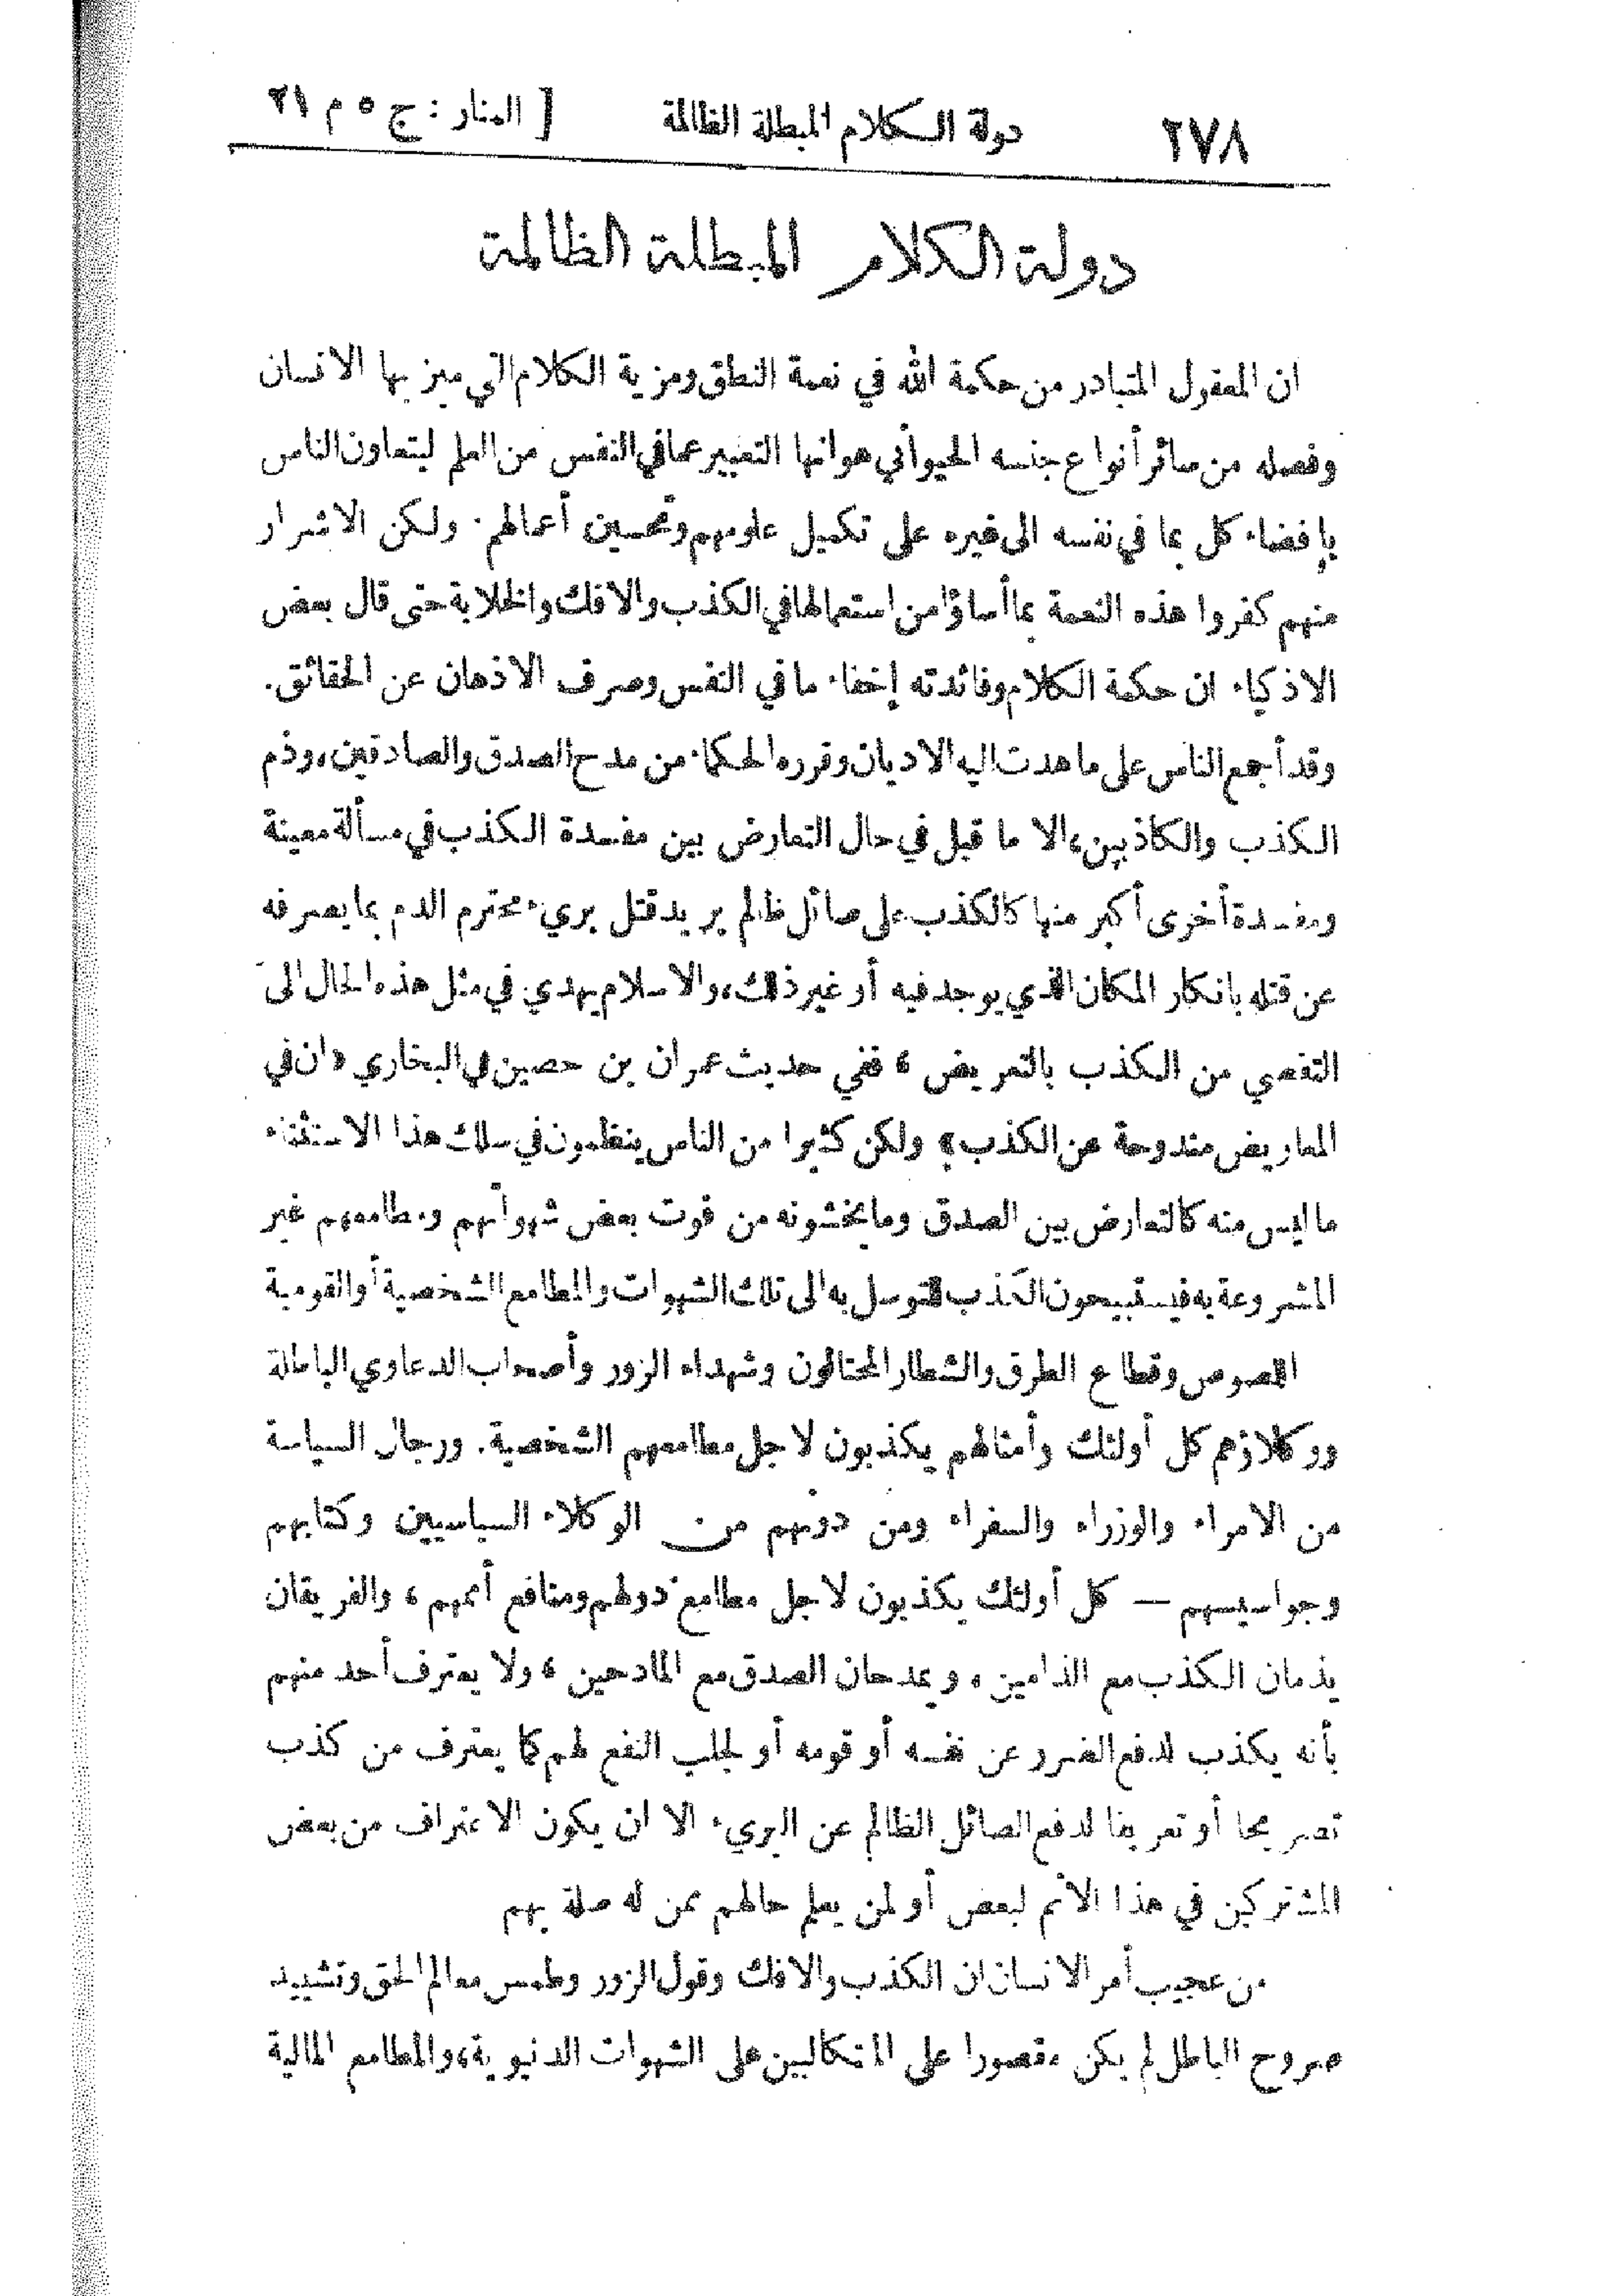 ٢٧٨ دولة الكلام المبطلة الظالمة [ المنار : ج ٥ م ٢١
دولة الكلام المبطلة الظالمة
ان المعقول المتبادر من حكمة الله في نعمة النطق ومزية الكلام التي ميز بها الانسان
وفصله من سائر أنواع جنسه الحيواني هو انها التعبير عما في النفس من العلم ليتعاون الناس
بإفضاء كل بما في نفسه الى غيره على تكميل علومهم وتحسين أعمالهم . ولكن الاشرار
منهم كفروا هذه النعمة بما أساؤا من استعمالها في الكذب والافك والخلابة حتى قال بعض
الاذكياء ان حكمة الكلام وفائدته إخفاء ما في النفس وصرف الاذهان عن الحقائق.
وقد أجمع الناس على ما هدت اليه الاديان وقرره الحكماء من مدح الصدق والصادقين، وذم
الكذب والكاذبين، الا ما قيل في حال التعارض بين مفسدة الكذب في مسألة معينة
ومفسدة أخرى أكبر منها كالكذب على صائل ظالم يريد قتل بريء محترم الدم بما يصرفه
عن قتله بانكار المكان الذي يوجد فيه أو غير ذلك، والاسلام يهدي في مثل هذه الحال الى
التفصي من الكذب بالتعريض ، ففي حديث عمران بن حصين في البخاري « ان في
المعاريض مندوحة عن الكذب » ولكن كثيرا من الناس ينظمون في سلك هذا الاستثناء
ما ليس منه كالتعارض بين الصدق وما يخشونه من فوت بعض شهواتهم ومطامعهم غير
المشروعة به فيستبيحون الكذب للتوسل به الى تلك الشهوات والمطامع الشخصية أو القومية
اللصوص وقطاع الطرق والشطار المحتالون وشهداء الزور وأصحاب الدعاوي الباطلة
ووكلاؤهم كل أولئك وأمثالهم يكذبون لاجل مطامعهم الشخصية. ورجال السياسة
من الامراء والوزراء والسفراء ومن دونهم من الوكلاء السياسيين وكتابهم
وجواسيسهم — كل أولئك يكذبون لاجل مطامع دولهم ومنافع أممهم ، والفريقان
يذمان الكذب مع الذامين ، ويمدحان الصدق مع المادحين ، ولا يعترف أحد منهم
بأنه يكذب لدفع الضرر عن نفسه أو قومه أو لجلب النفع لهم كما يعترف من كذب
تصريحا أو تعريضا لدفع الصائل الظالم عن البريء الا ان يكون الاعتراف من بعض
المشتركين في هذا الاثم لبعض أو لمن يعلم حالهم ممن له صلة بهم
من عجيب أمر الانسان ان الكذب والافك وقول الزور وطمس معالم الحق وتشييد
صروح الباطل لم يكن مقصورا على المتكالبين على الشهوات الدنيوية، والمطامع المالية